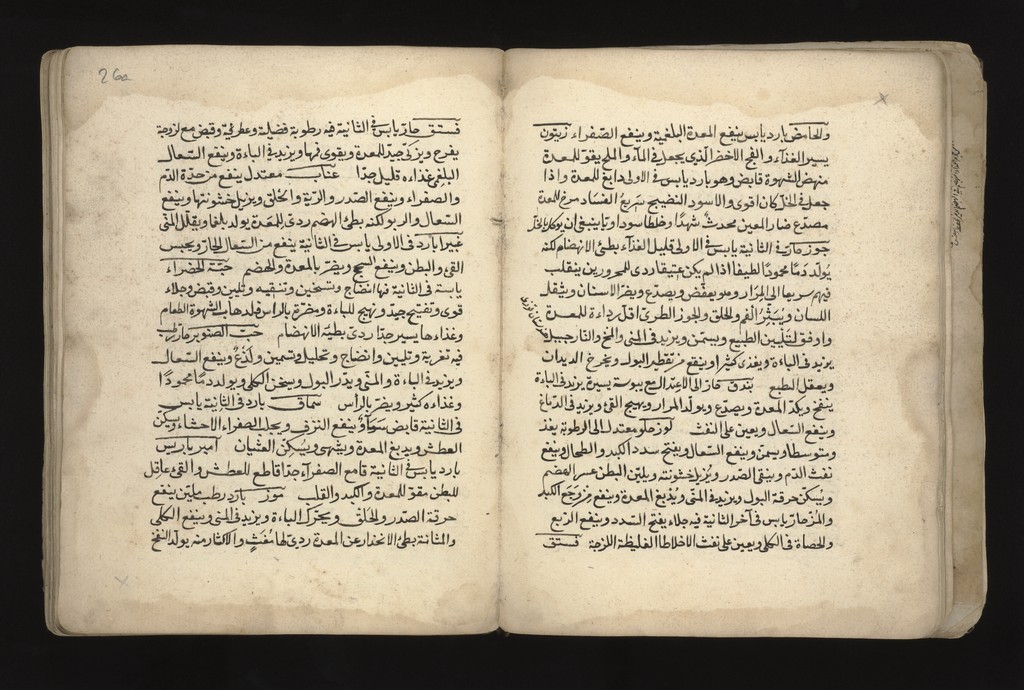 والحامض بارد يابس ينفع المعدة البلغمية وينفع الصفراء زيتون
يسير الغذاء والفج الاخضر الذي يجعل في الماء والملح يقوي للمعدة
منهض للشهوة قابض وهو بارد يابس في الاولى دابغ للمعدة واذا
جعل في الخل كان اقوى والاسود النضيج سريع الفساد مرخ للمعدة
مصدع ضار للعين محدث سهدا وخلطا سوداويا ينبغي ان يوكل
جوز حار في الثانية يابس في الاولى قليل الغذاء بطئ الانهضام لكنه
يولد دما محمودا لطيفا اذا لم يكن عتيقا ردى للمحرورين ينقلب
فيهم سريعا الى المرار ويصدع ويضر الاسنان ويثقل
اللسان ويبثر الفم والحلق والجوز الطرى اقل رداءة للمعدة
واوفق لتليين الطبيع ويسمن ويزيد في المنى والمخ والنارجيل
يزيد في الباءة ويغذى كثيرا وينفع من تقطير البول ويخرج الديدان
ويعقل الطبع بندق قار الى الاعتدال مع يبوسة يسيرة يزيد في الباءة
ينفخ وبكد المعدة ويصدع ويولد المرار ويهيج القئ ويزيد في الدماغ
وينفع السعال ويعين على النفث لوز حلو معتدل الى الرطوبة يغذ
ومتوسطا ويسمن وينفع السعال ويفتح سدد الكبد والطحال وينفع
نفث الدم وينقى الصدر ويزيل خشونته ويلين البطن عسر الهضم
ويسكن حرقة البول ويزيد في المنى ويدبغ المعدة وينفع من وجع الكبد
والمر حار يابس في آخر الثانية فيه جلاء يفتح السدد وينفع الربع
والحصاة في الكلى ويعين على نفث الاخلاط الغليظة اللزجة فستق
26a
فستق حار يابس في الثانية فيه رطوبة فضلية وعطرية وقبض مع لزوجة
يفرح ويزكى جيد للمعدة ويقوى فمها ويزيد في الباءة وينفع السعال
البلغمى غذاءه قليل جدا عناب معتدل ينفع من حدة الدم
والصفراء وينفع الصدر والرية والحلق ويزيل خشونتها وينفع
السعال والربو لكنه بطئ الهضم ردى للمعدة يولد بلغما ويقلل المنى
غبيرا بارد في الاولى يابس في الثانية ينفع من السعال الحار ويحبس
القئ والبطن وينفع السحج ويضر بالمعدة والهضم حبة الخضراء
يابسة في الثانية فيها انضاج وتسخين وتنقية وتليين وقبض وجلاء
قوى وتفتيح جيد وتهييج للباءة ومضرة بالراس شهوة الطعام
وغذاءها يسير جدا ردى بطيئة الانهضام حب الصنوبر حار رطب
فيه تغرية وتليين وانضاج وتحليل وتسمين ولذع وينفع السعال
ويزيد في الباءة والمنى ويدر البول ويسخن الكلى ويولد دما محمودا
وغذاءه كثير ويضر بالرأس سماق بارد في الثانية يابس
في الثانية قابض ينفع النزف ويجلب الصفراء الاحشاء ويسكن
العطش ويدبغ المعدة ويشهى ويسكن الغثيان امير باريس
بارد يابس في الثانية قامع الصفراء جدا قاطع للعطش والقئ عاقل
للبطن مقو للمعدة والكبد والقلب موز بارد رطب ملين ينفع
حرقة الصدر والحلق ويحرك الباءة ويزيد في المنى وينفع الكلى
والمثانة بطئ الانحدار عن المعدة ردى لها والاكثار منه يولد النفخ